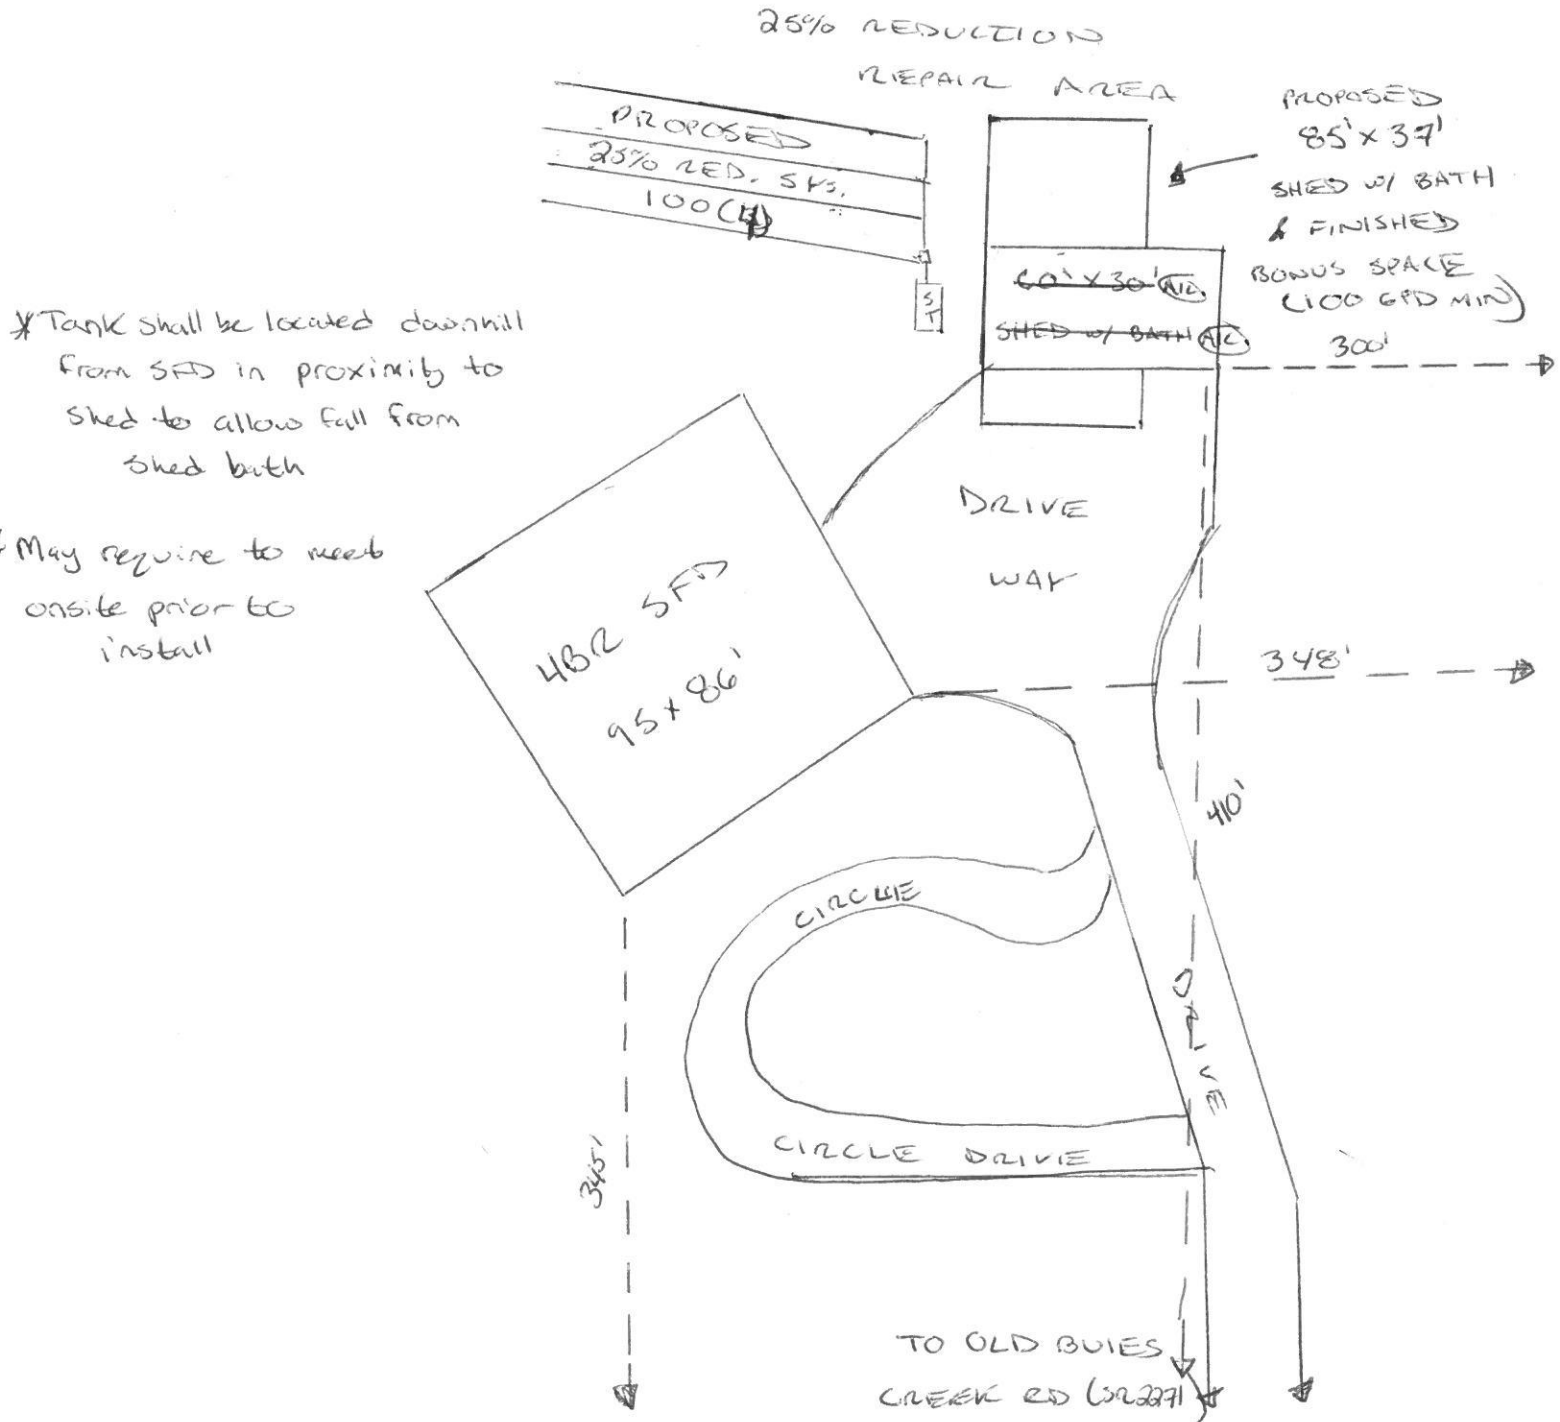 25% REDUCTION
REPAIR AREA
PROPOSED
25% RED. SYS.
100(4)
ST
PROPOSED
85' x 37'
SHED W/ BATH
& FINISHED
BONUS SPACE
(100 GPD MIN)
60' x 30'
SHED W/ BATH
300'
* Tank shall be located downhill
from SFD in proximity to
shed to allow fall from
shed bath
* May require to meet
onsite prior to
install
DRIVE
WAY
4BR SFD
95 x 86'
348'
410'
CIRCLE
DRIVE
CIRCLE DRIVE
345'
TO OLD BUIES
CREEK RD (SR2271)